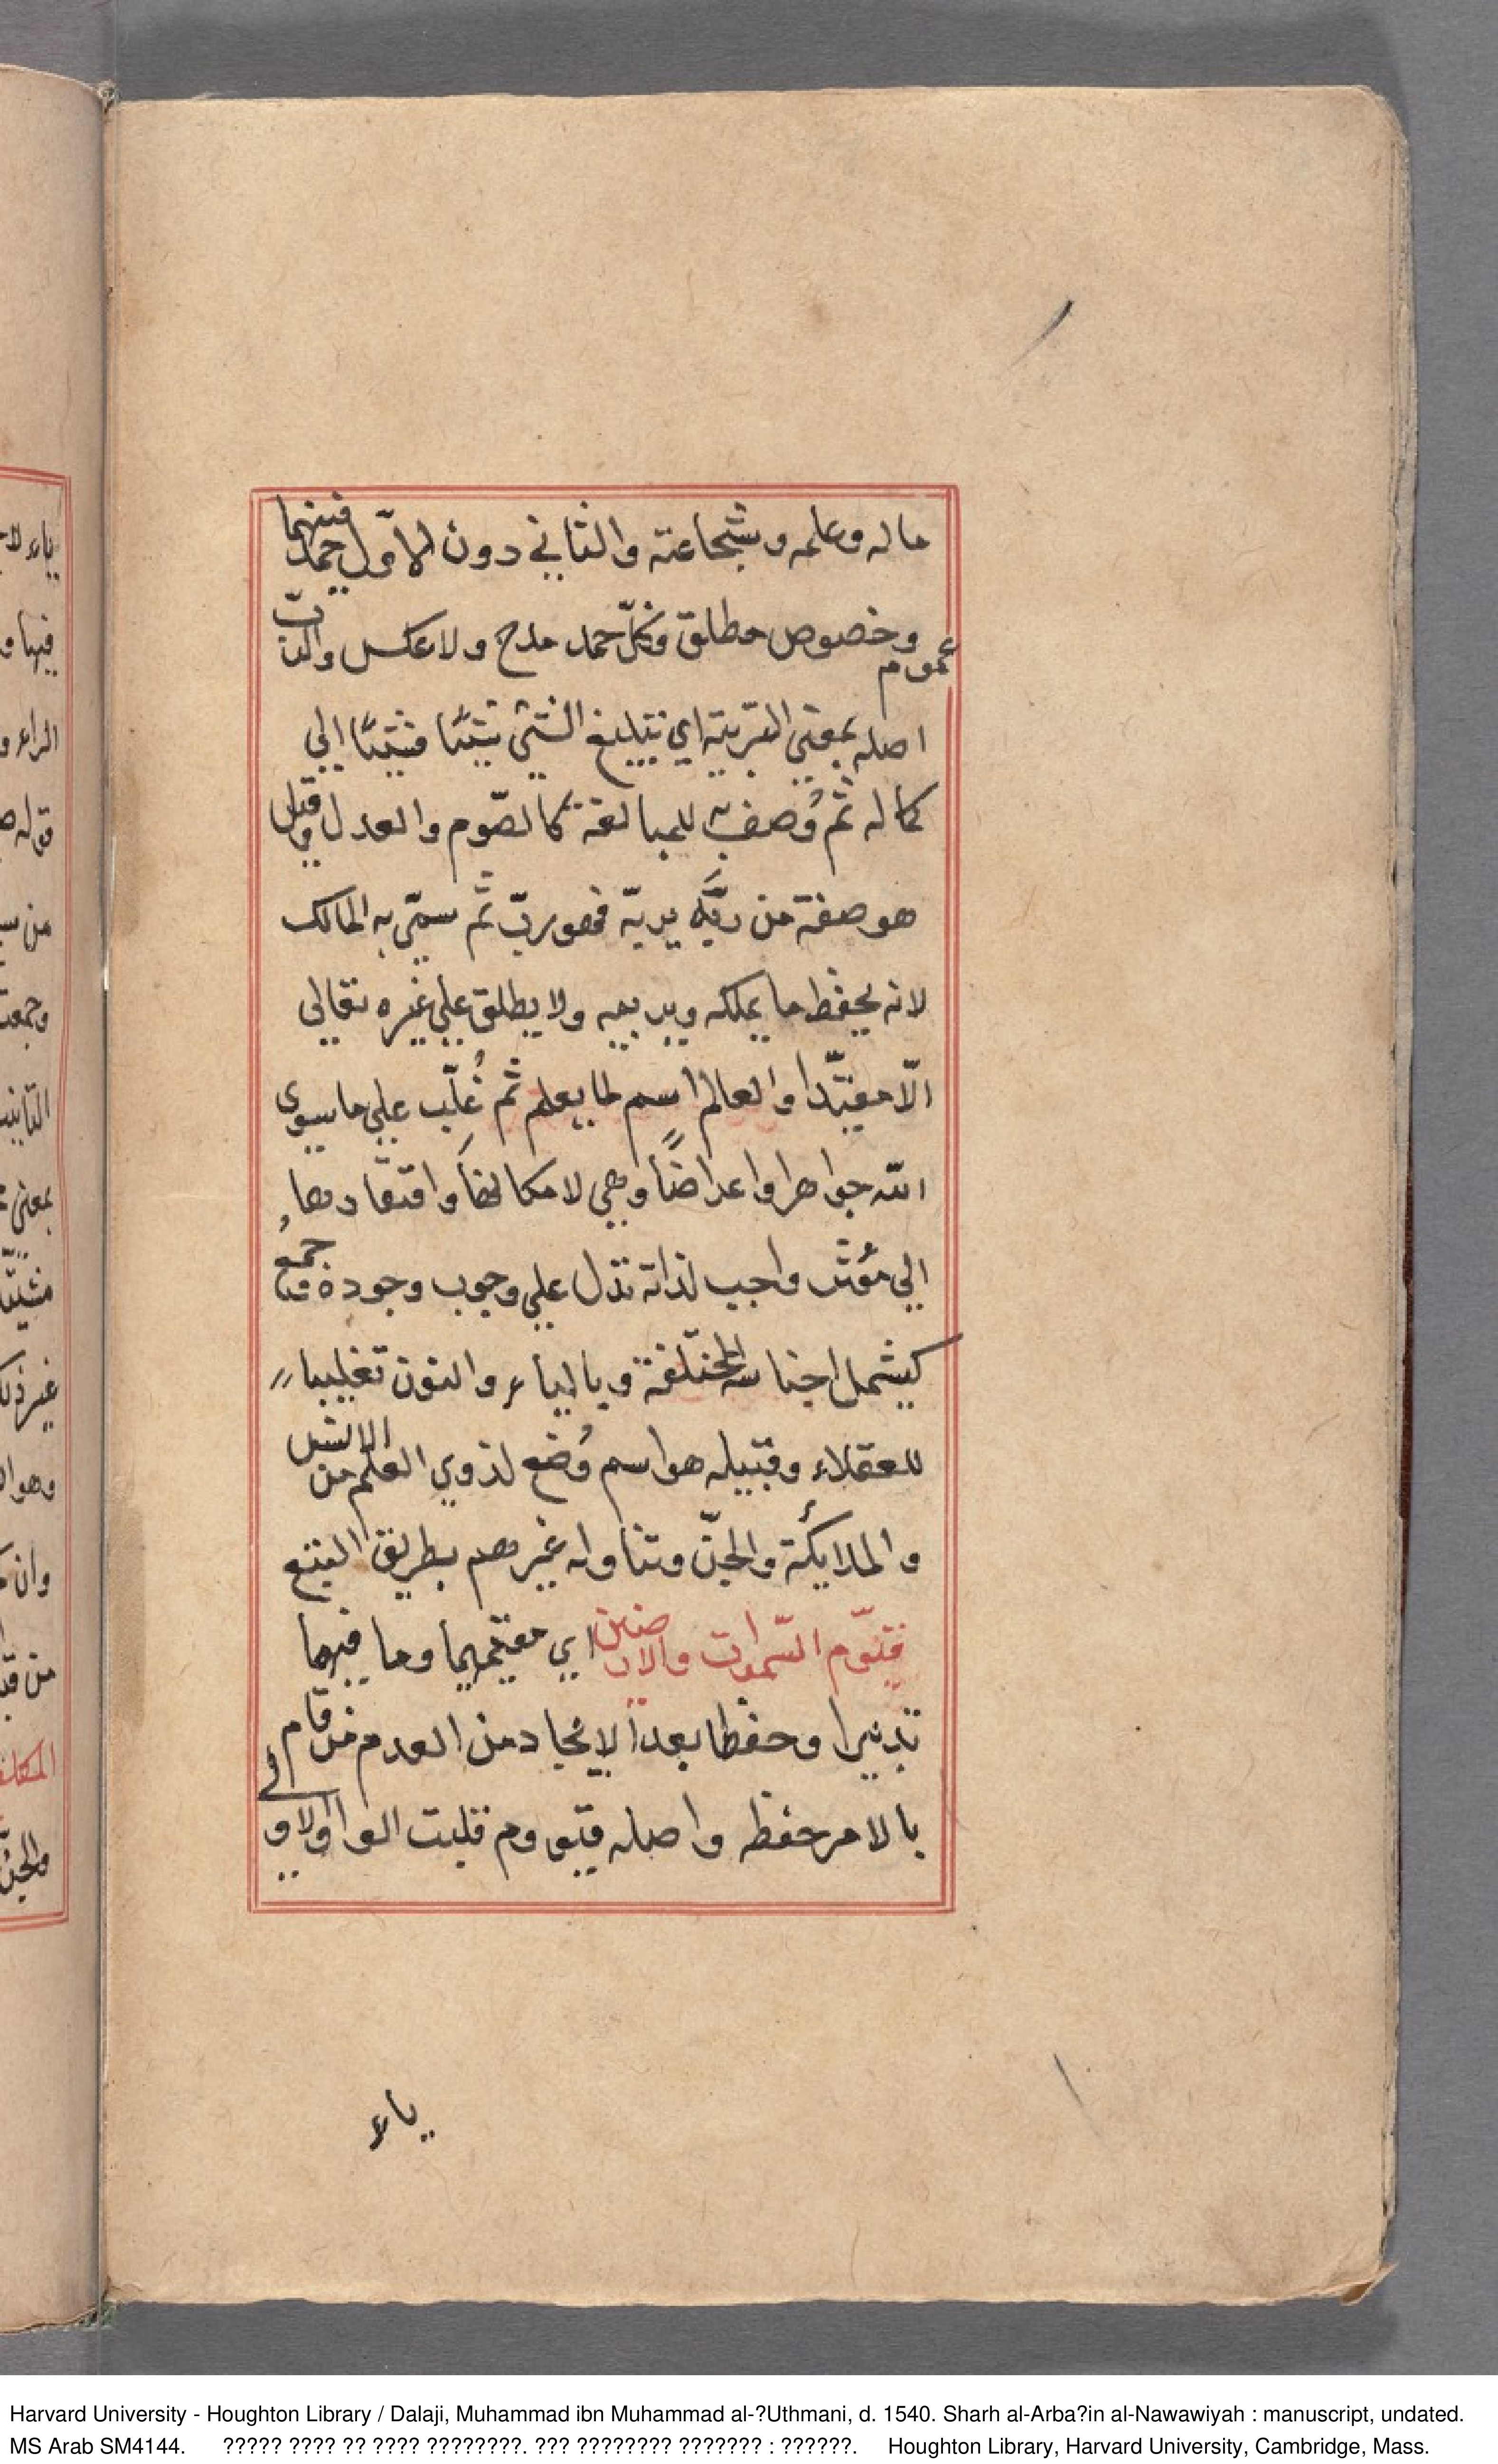 ماله وعلمه وشجاعته والثاني دون الاوّل حمد فبينهما
عموم وخصوص مطلق وكلّ حمد مدح ولا عكس والربّ
اصله بمعنى التّربية اي تبليغ الشئ شيئًا فشيئًا الي
كماله ثم وُصف به للمبالغة كالصّوم والعدل وقيل
هو صفة من ربَّه يربّه فهو ربّ ثم سمّي به المالك
لانه يحفظ ما يملكه ويربيه ولا يطلق علي غيره تعالي
الّا مقيّدا والعالم اسم لما يعلم ثم غُلّب علي ما سوى
الله جواهرا واعراضًا وهي لامكانها وافتقارها
الي مؤثر واجب لذاته تدل علي وجوب وجوده وجمعُ
ليشمل اجناسه المختلفة وبالياء والنون تغليبا
للعقلاء وقيل هو اسم وُضع لذوي العلم من الانس
والملائكة والجنّ وتناوله غيرهم بطريق التبع
قيّوم السّموات والارضين اي مقيمهما وما فيهما
تدبيرا وحفظا بعد الايجاد من العدم من قام
بالامر حفظه واصله قيووم قلبت الواو الاولي
ياء
Harvard University - Houghton Library / Dalaji, Muhammad ibn Muhammad al-?Uthmani, d. 1540. Sharh al-Arba?in al-Nawawiyah : manuscript, undated.
MS Arab SM4144. ????? ???? ?? ???? ????????. ??? ???????? ??????? : ??????. Houghton Library, Harvard University, Cambridge, Mass.